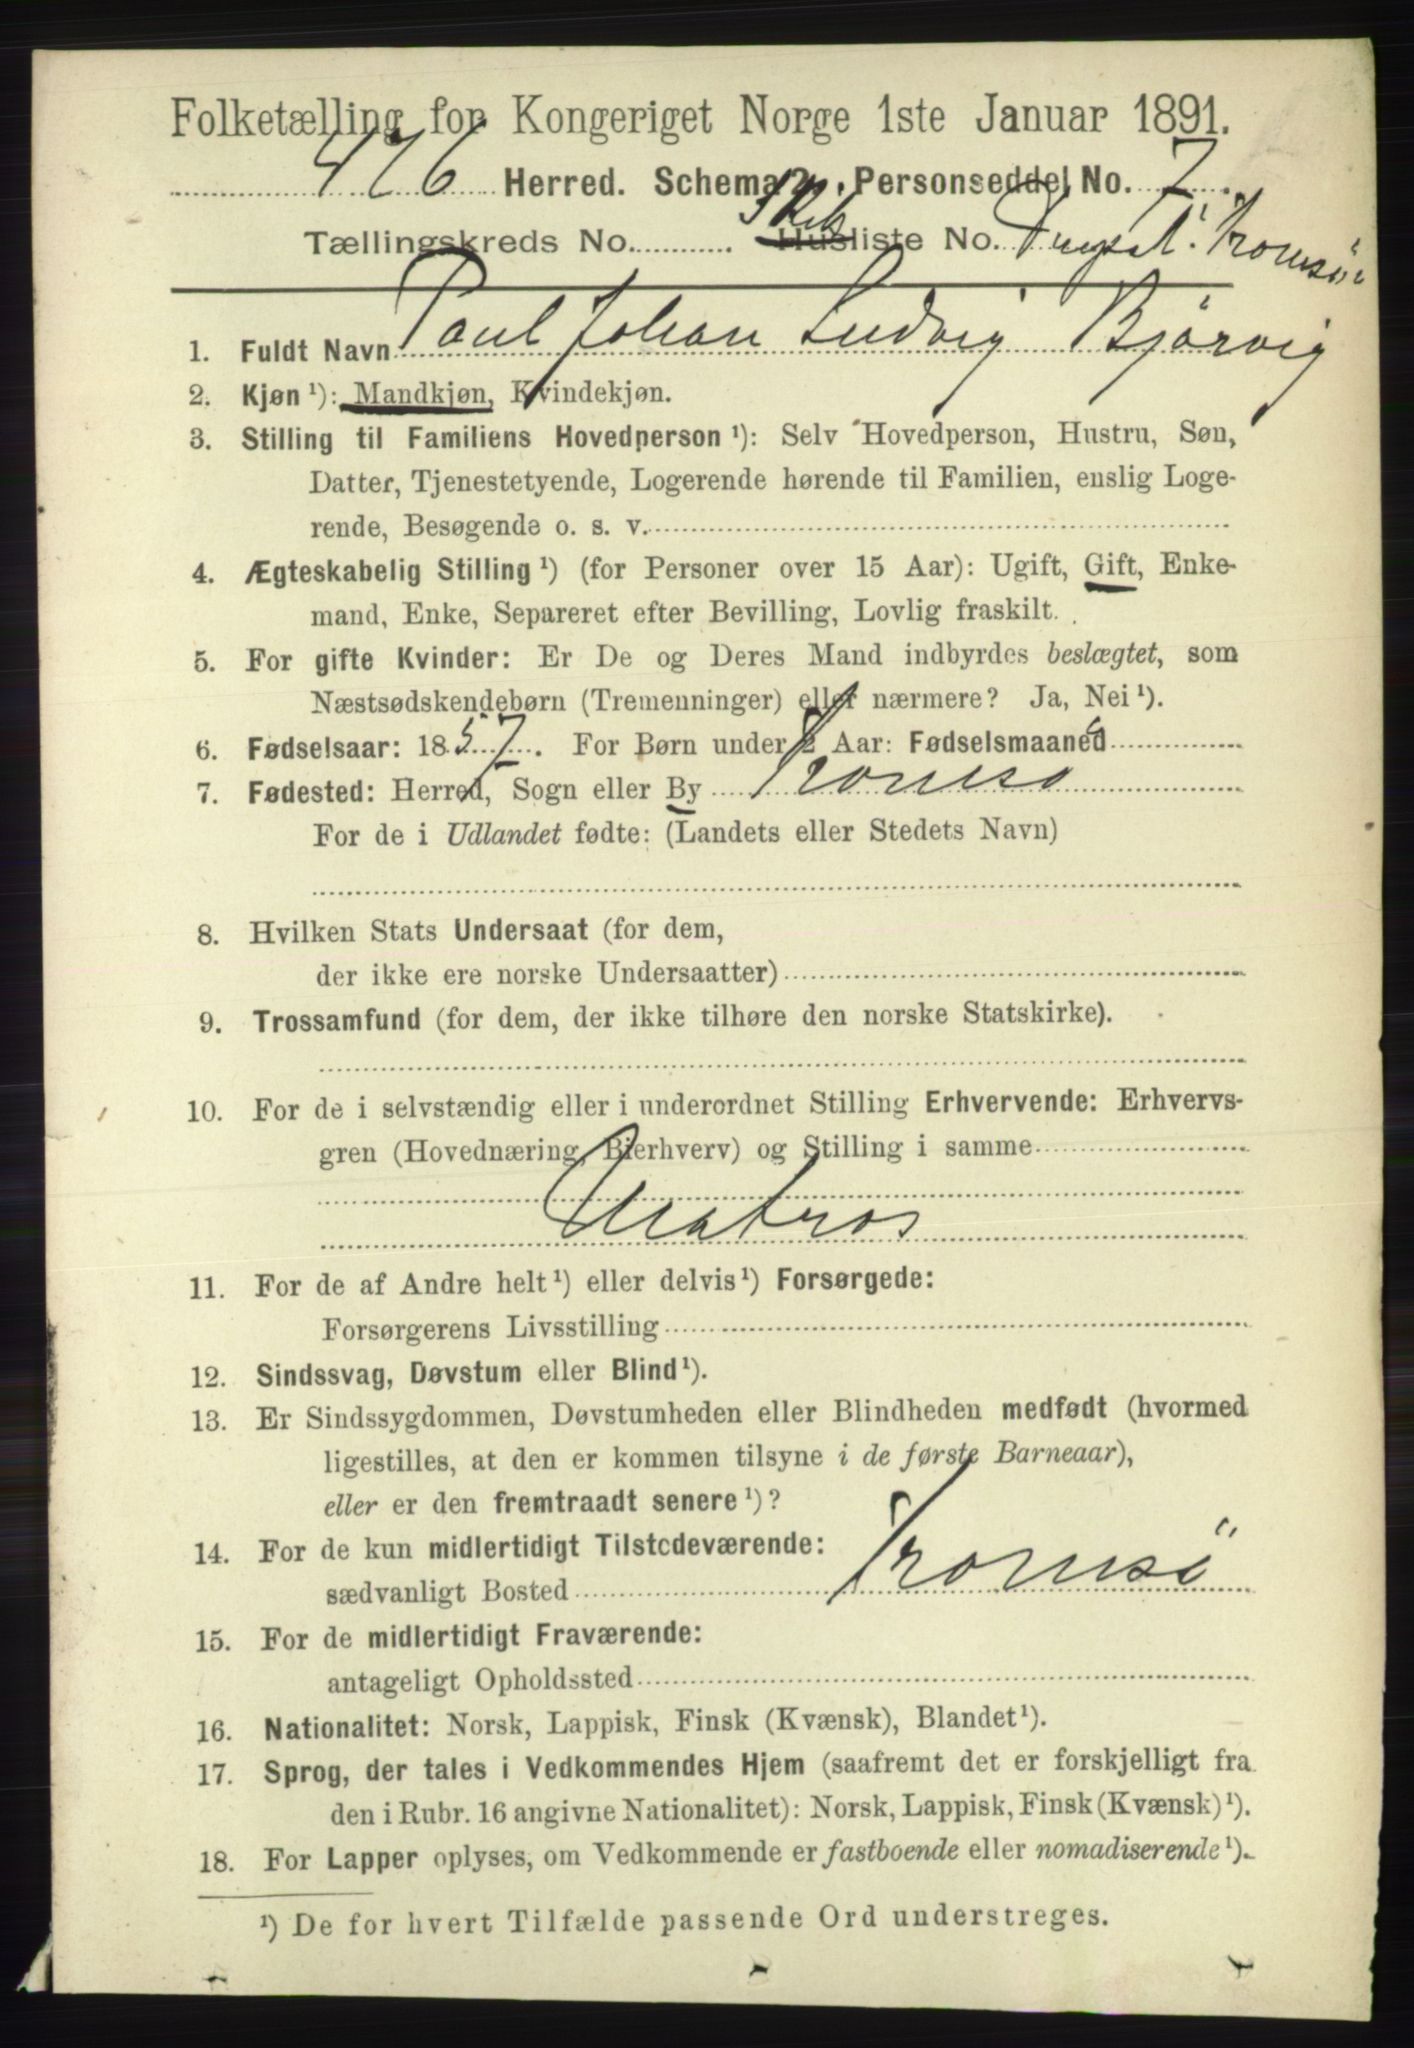 Folketælling for Kongeriget Norge 1ste Januar 1891.
Herred. Schema 2. Personseddel No. 7.
Tællingskreds No. Skib Husliste No. Tromsö
1. Fuldt Navn Paul Johan Ludvig Bjørvig
2. Kjøn ¹): Mandkjøn, Kvindekjøn.
3. Stilling til Familiens Hovedperson ¹): Selv Hovedperson, Hustru, Søn,
Datter, Tjenestetyende, Logerende hørende til Familien, enslig Loge-
rende, Besøgende o. s. v.
4. Ægteskabelig Stilling ¹) (for Personer over 15 Aar): Ugift, Gift, Enke-
mand, Enke, Separeret efter Bevilling, Lovlig fraskilt.
5. For gifte Kvinder: Er De og Deres Mand indbyrdes beslægtet, som
Næstsødskendebørn (Tremenninger) eller nærmere? Ja, Nei ¹).
6. Fødselsaar: 1857. For Børn under 2 Aar: Fødselsmaaned
7. Fødested: Herred, Sogn eller By Tromsö
For de i Udlandet fødte: (Landets eller Stedets Navn)
8. Hvilken Stats Undersaat (for dem,
der ikke ere norske Undersaatter)
9. Trossamfund (for dem, der ikke tilhøre den norske Statskirke).
10. For de i selvstændig eller i underordnet Stilling Erhvervende: Erhvervs-
gren (Hovednæring, Bierhverv) og Stilling i samme
Matros
11. For de af Andre helt ¹) eller delvis ¹) Forsørgede:
Forsørgerens Livsstilling
12. Sindssvag, Døvstum eller Blind ¹).
13. Er Sindssygdommen, Døvstumheden eller Blindheden medfødt (hvormed
ligestilles, at den er kommen tilsyne i de første Barneaar),
eller er den fremtraadt senere ¹)?
14. For de kun midlertidigt Tilstedeværende:
sædvanligt Bosted Tromsö
15. For de midlertidigt Fraværende:
antageligt Opholdssted
16. Nationalitet: Norsk, Lappisk, Finsk (Kvænsk), Blandet ¹).
17. Sprog, der tales i Vedkommendes Hjem (saafremt det er forskjelligt fra
den i Rubr. 16 angivne Nationalitet): Norsk, Lappisk, Finsk (Kvænsk) ¹).
18. For Lapper oplyses, om Vedkommende er fastboende eller nomadiserende ¹).
¹) De for hvert Tilfælde passende Ord understreges.